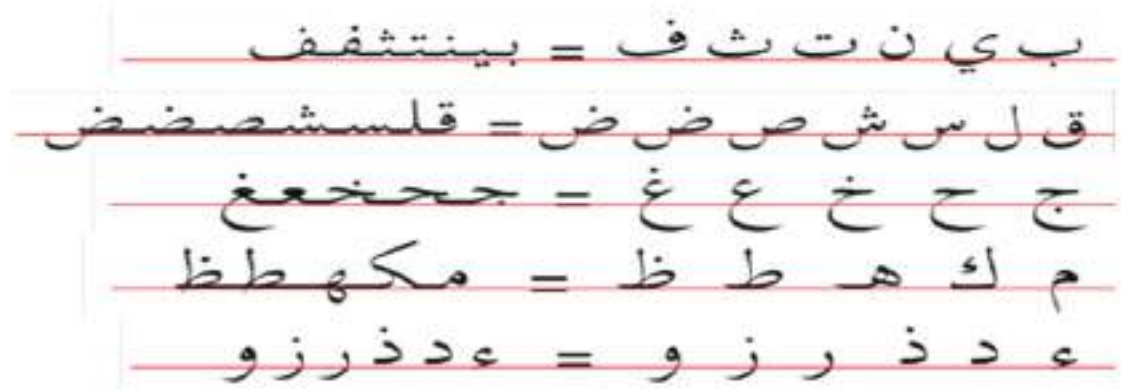 ب ي ن ت ث ف = بينتثفف
ق ل س ش ص ض ض = قلسشصضض
ج ح خ ع غ = جحخعغ
م ك هـ ط ظ = مكهطظ
ء د ذ ر ز و = ءدذرزو